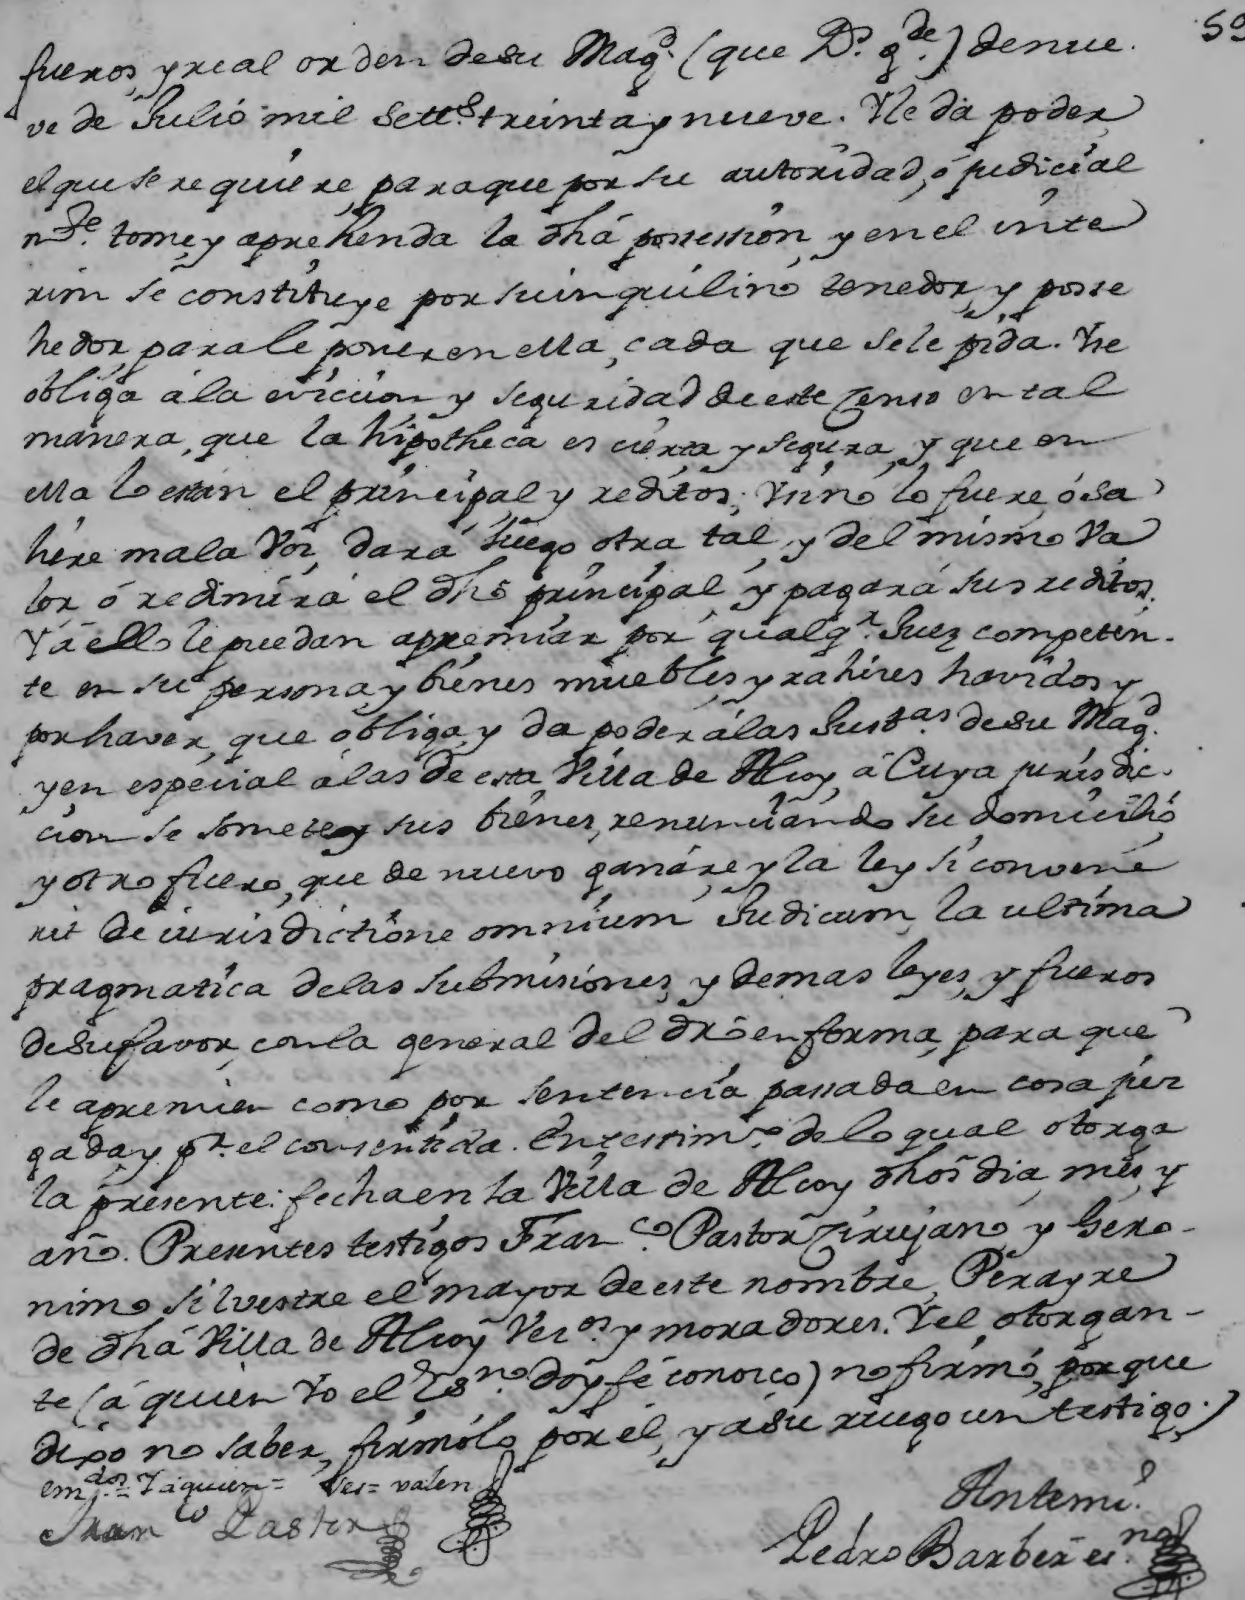 59
fueros, y real orden de su Magd. (que Ds. gde.) de nue
ve de Julio mil Setts. treinta y nueve. Y le da poder
el que se requiere, para que por su autoridad, ó judicial
mte. tome, y aprehenda la dha possession, y en el inte
rim se constituye por su inquilino tenedor, y posse
hedor, para le poner en ella, cada que se le pida. Y se
obliga á la eviccion y seguridad de este Zenso en tal
manera, que la hipotheca es cierta y segura, y que en
ella lo están el principal y reditos; Y si no lo fuere, ó sa
hire mala Voz, dará luego otra tal, y del mismo Va
lor ó redimirá el dho principal, y pagará sus reditos.
Y á ello le puedan apremiar por qualqr. Juez competen-
te en su persona, y bienes muebles, y rahires havidos y
por haver, que obliga, y da poder á las Justas. de su Magd.
y en especial á las de esta Villa de Alcoy, á Cuya jurisdic-
cion se somete y sus bienes, renunciando su domicilio,
y otro fuero, que de nuevo ganáre, y la ley si convene
rit de iurisdictione omnium Judicum, la ultima
pragmatica de las submisiones, y demas leyes, y fueros
de su favor, con la general del dro en forma, para que
le apremien como por sentencia passada en cosa juz
gada, y pr. el consentida. En testimo. de lo qual otorga
la presente: fecha en la Villa de Alcoy dhos dia, mes, y
año. Presentes testigos Franco. Pastor Zirujano, y Gero-
nimo Silvestre el mayor de este nombre, Perayre
de dha Villa de Alcoy Vezos. y moradores. Y el otorgan-
te (á quien Yo el Esno. doy fé conozco) no firmó, porque
dixo no saber, firmólo por él, y á su ruego un testigo.)
emdos. = Y á quien = Ves = valen
Franco Pastor
Antemi.
Pedro Barber esno.